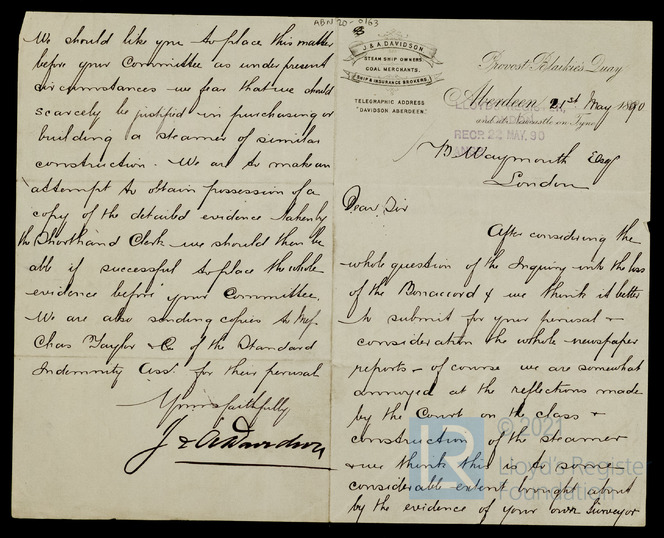 ABN 20-0163
J & A DAVIDSON
STEAM SHIP OWNERS
COAL MERCHANTS.
SHIP & INSURANCE BROKERS.
TELEGRAPHIC ADDRESS
"DAVIDSON ABERDEEN."
Provost Blaikie's Quay
Aberdeen, 21st May 1890
and at Newcastle on Tyne
RECR 22 MAY. 90
B. Waymouth Esq
London
Dear Sir
After considering the
whole question of the Inquiry into the loss
of the Bonaccord & we think it better
to submit for your perusal &
consideration the whole newspaper
reports - of course we are somewhat
annoyed at the reflections made
by the Court on the class &
construction of the steamer
& we think this is to some
considerable extent brought about
by the evidence of your own Surveyor
We should like you to place this matter
before your Committee as under present
circumstances we fear that we should
scarcely be justified in purchasing or
building a steamer of similar
construction. We are to make an
attempt to obtain possession of a
copy of the detailed evidence taken by
the Shorthand Clerk we should then be
able if successful to place the whole
evidence before your Committee.
We are also sending copies to Messrs
Chas Taylor & Co of the Standard
Indemnity Assn for their perusal
Yours faithfully
J & A Davidson
© 2021
Lloyd's Register
Foundation